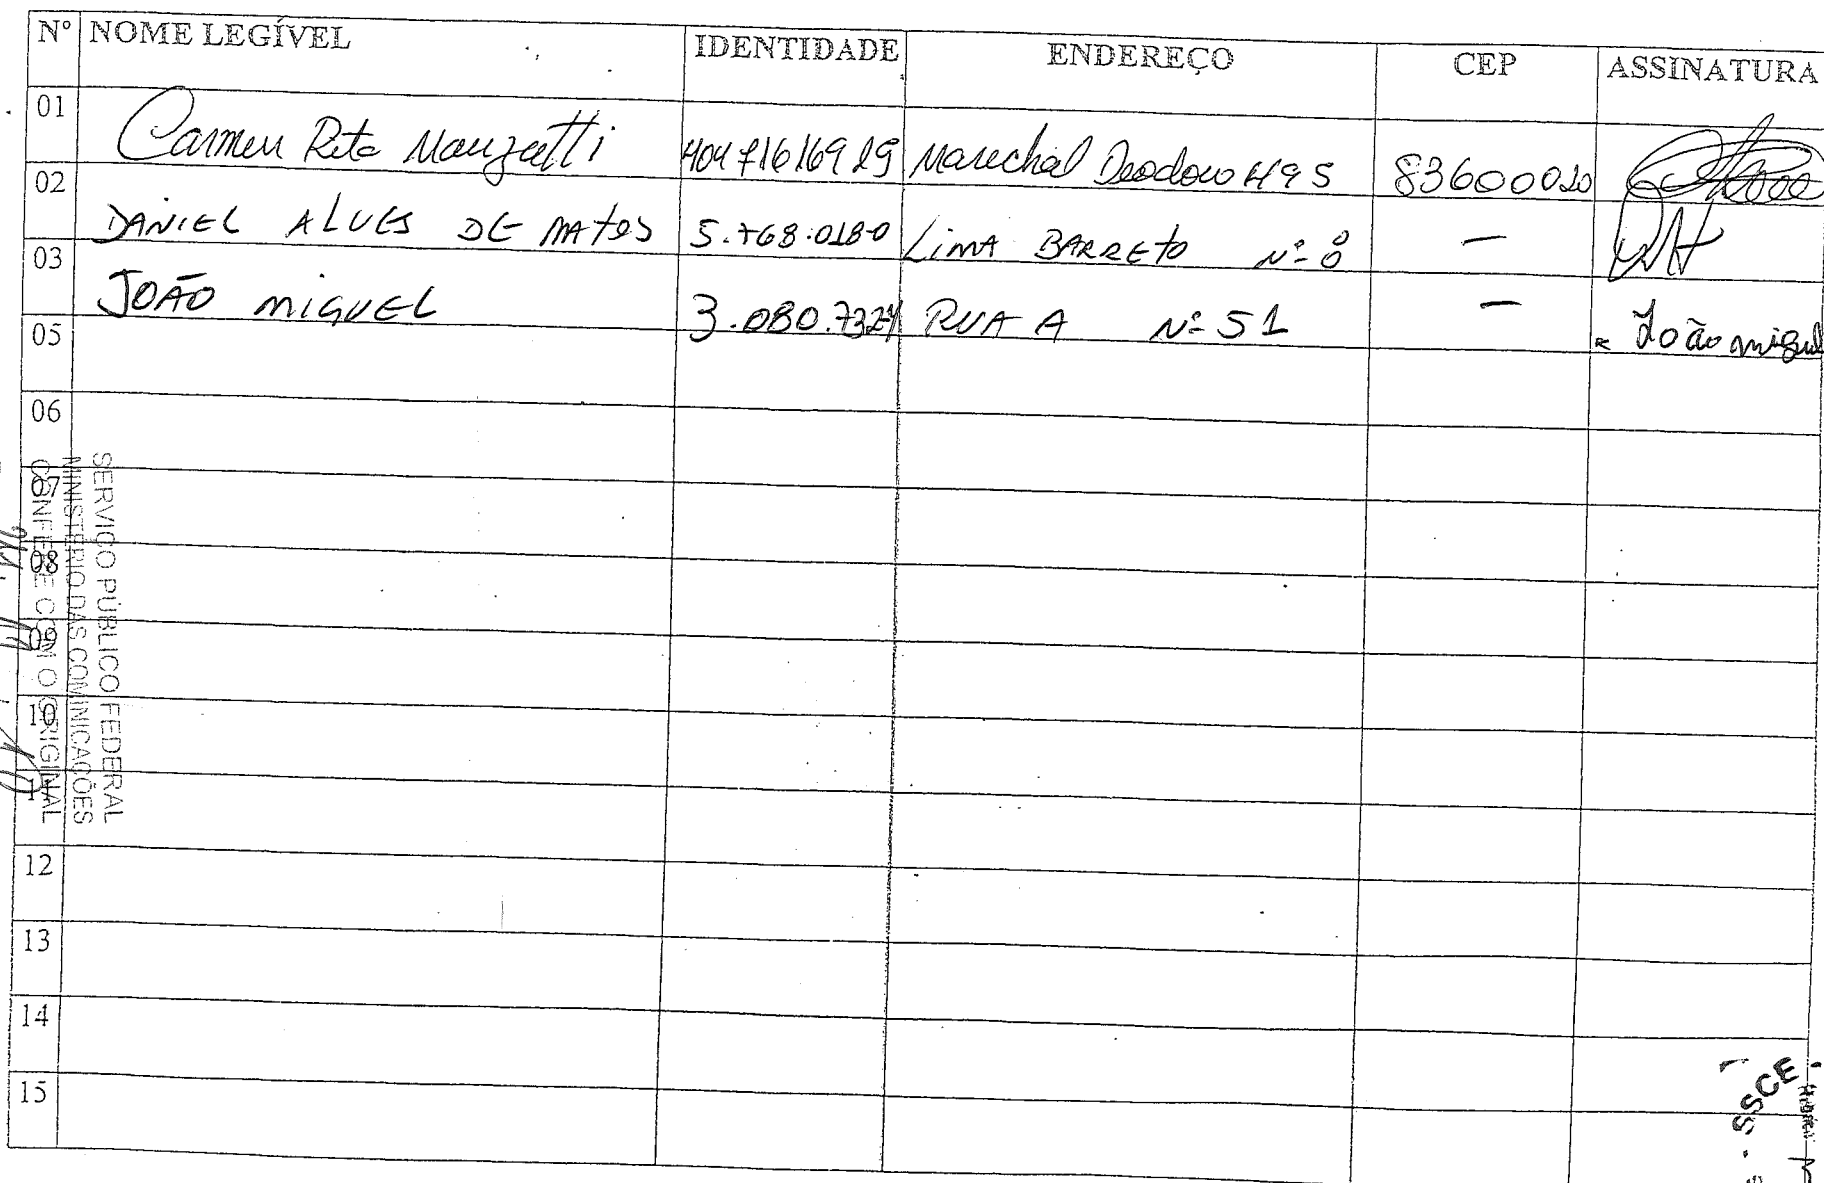 Nº NOME LEGÍVEL IDENTIDADE ENDEREÇO CEP ASSINATURA
01 Carmen Rita 404716169 Marechal Deodoro 495 83600010
02 DANIEL ALVES DE MATOS 5.768.018-0 LIMA BARRETO Nº 8 —
03 JOÃO MIGUEL 3.080.732 RUA A Nº 51 — João miguel
05
06
07
08
09
10
11
12
13
14
15
SERVIÇO PÚBLICO FEDERAL
MINISTÉRIO DAS COMINICAÇÕES
CONFERE COM O ORIGINAL
SSCE